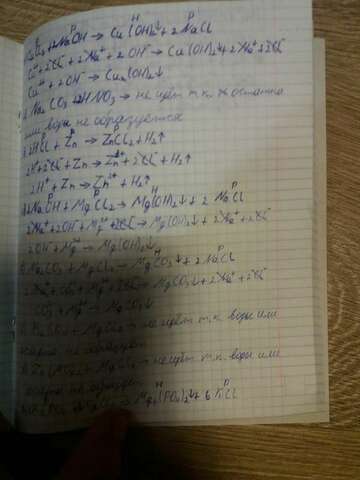 NaOH → Cu(OH)₂↓ + 2NaCl
+ 2Cl⁻ + 2Na⁺ + 2OH⁻ → Cu(OH)₂↓ + 2Na⁺ + 2Cl⁻
Cu²⁺ + 2OH⁻ → Cu(OH)₂↓
Na₂CO₃ + HNO₃ → не идёт т.к.
или воды не образуется
2HCl + Zn → ZnCl₂ + H₂↑
2H⁺ + 2Cl⁻ + Zn → Zn²⁺ + 2Cl⁻ + H₂↑
2H⁺ + Zn → Zn²⁺ + H₂↑
2NaOH + MgCl₂ → Mg(OH)₂↓ + 2NaCl
2Na⁺ + 2OH⁻ + Mg²⁺ + 2Cl⁻ → Mg(OH)₂↓ + 2Na⁺ + 2Cl⁻
2OH⁻ + Mg²⁺ → Mg(OH)₂↓
Na₂CO₃ + MgCl₂ → MgCO₃↓ + 2NaCl
2Na⁺ + CO₃ + Mg²⁺ + 2Cl⁻ → MgCO₃↓ + 2Na⁺ + 2Cl⁻
CO₃ + Mg²⁺ → MgCO₃↓
+ MgCl₂ → не идёт т.к. воды или
не образует
+ MgCl₂ → не идёт т.к. воды или
не образует
→ Mg₃(PO₄)₂↓ + 6KCl